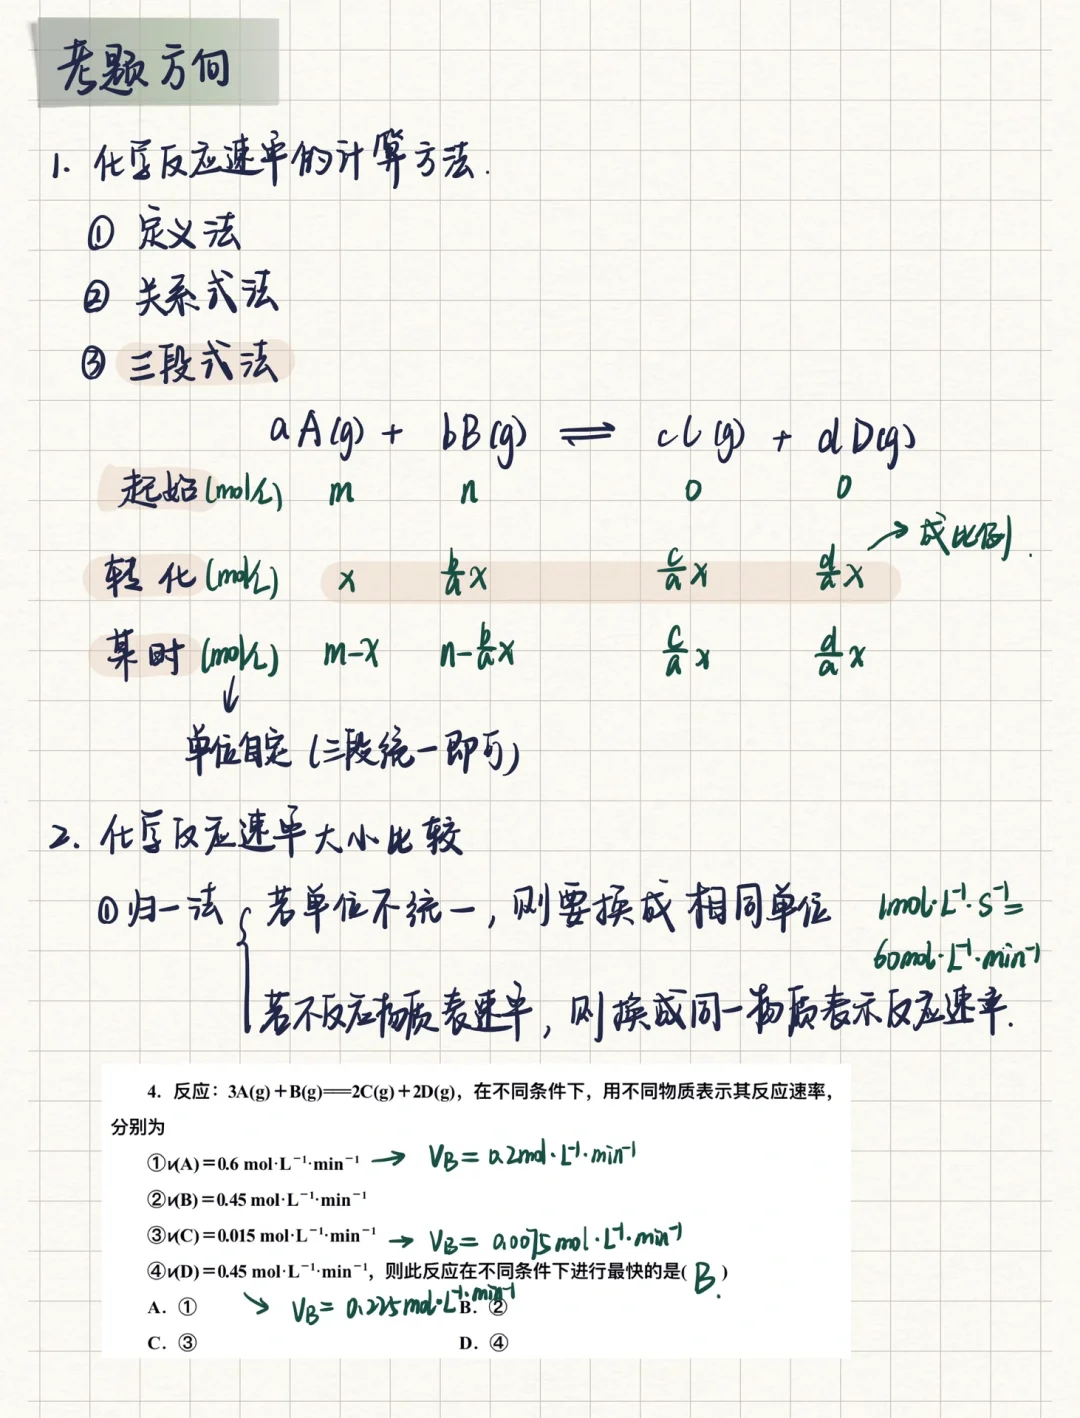 考题方向
1. 化学反应速率的计算方法.
① 定义法
② 关系式法
③ 三段式法
aA(g) + bB(g) ⇌ cC(g) + dD(g)
起始(mol/L) m n 0 0
→ 成比例.
转化(mol/L) x b/a x c/a x d/a x
某时(mol/L) m-x n-b/a x c/a x d/a x
↓
单位自定(三段统一即可)
2. 化学反应速率大小比较
①归一法 { 若单位不统一,则要换成相同单位 1mol·L⁻¹·s⁻¹=
60mol·L⁻¹·min⁻¹
若不反应物质表速率,则换成同一物质表示反应速率.
4. 反应：3A(g)+B(g)══2C(g)+2D(g)，在不同条件下，用不同物质表示其反应速率，
分别为
①v(A)=0.6 mol·L⁻¹·min⁻¹ → VB= 0.2mol·L⁻¹·min⁻¹
②v(B)=0.45 mol·L⁻¹·min⁻¹
③v(C)=0.015 mol·L⁻¹·min⁻¹ → VB= 0.0075mol·L⁻¹·min⁻¹
④v(D)=0.45 mol·L⁻¹·min⁻¹，则此反应在不同条件下进行最快的是( B. )
→ VB= 0.225mol·L⁻¹·min⁻¹
A. ① B. ②
C. ③ D. ④